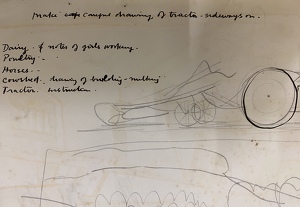 Make campus drawing of tractor sideways on.
Dairy. & notes of girls working.
Poultry - .
Horses. - .
Cowshed. drawing of building - milking
Tractor. instruction.